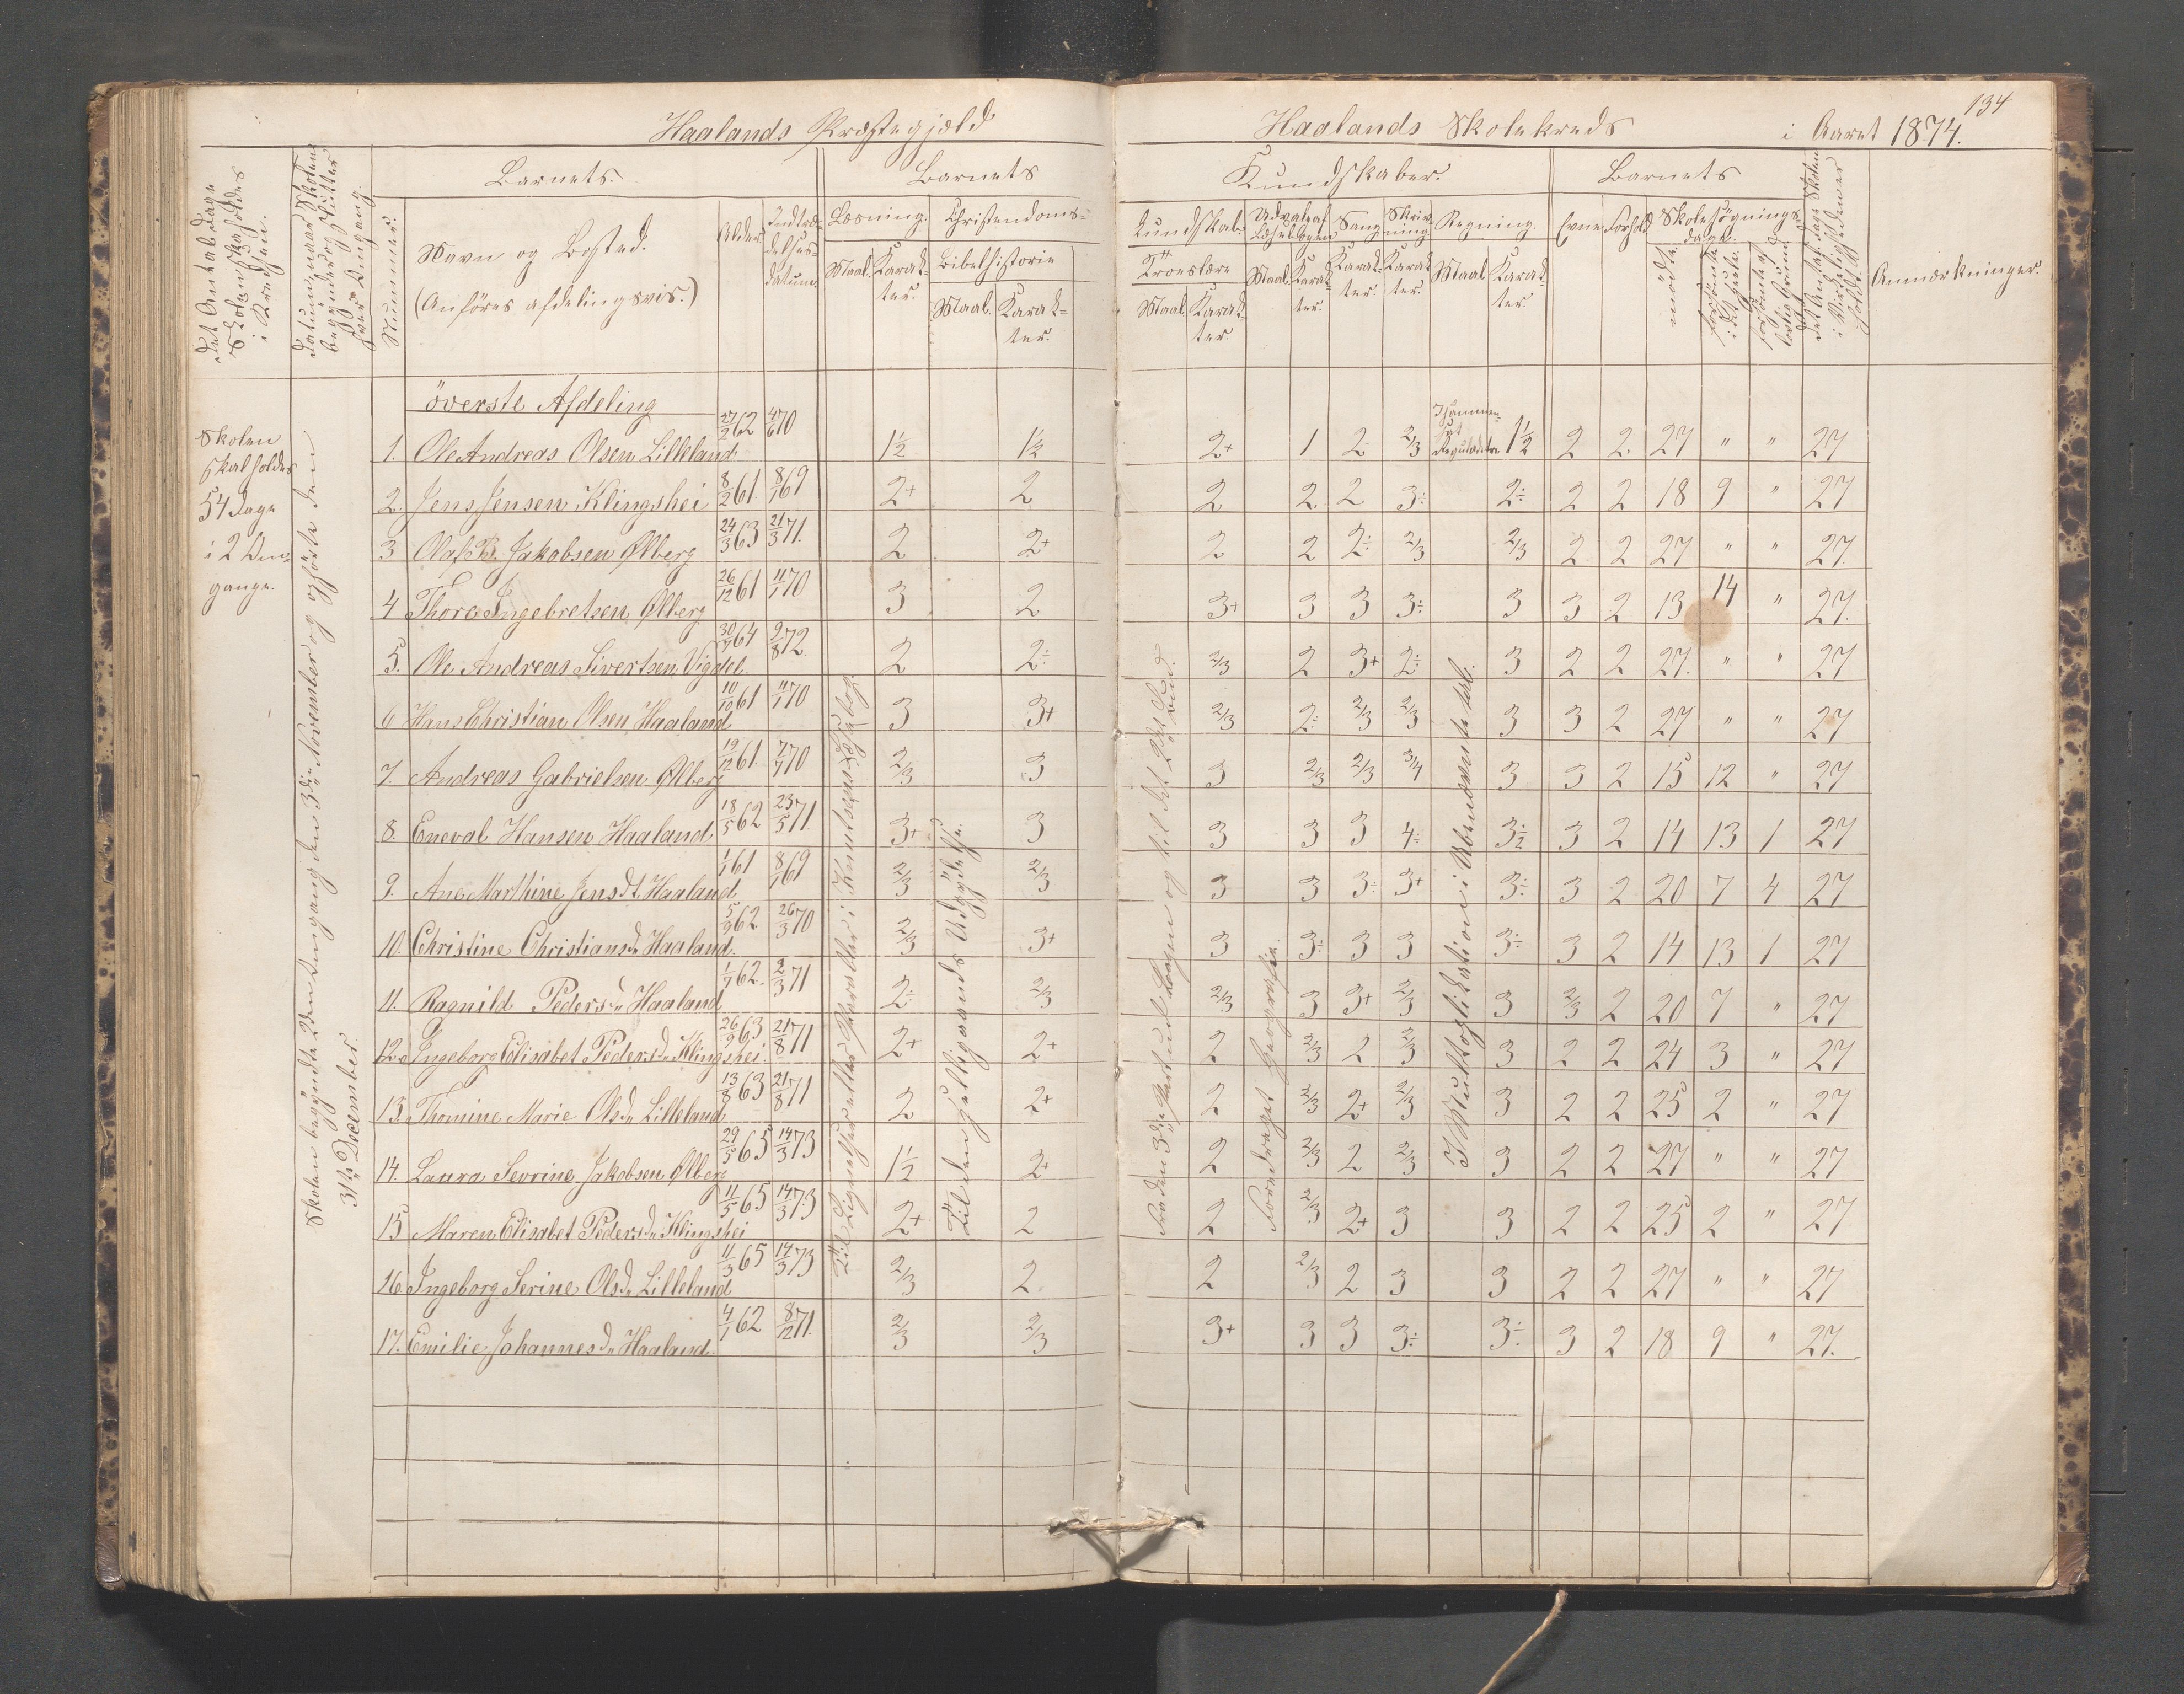 134
Haalands Præstegjæld Haalands Skolekreds i Aaret 1874.
Det Antal Dage Skolen skal holdes i Kredsen.
Datum, naar Skolen begynder og slutter hver Omgang.
Nummer.
Barnets.
Navn og Bosted.
(Anföres afdelingsvis.)
Alder
Indtrædelses-datum.
Barnets
Læsning. Christendoms-
Maal. Karak-ter.
Bibelhistorie
Maal. Karak-ter.
Kundskaber.
kundskab
Troeslære
Maal. Karak-ter.
Udvalg af Læsebogen
Maal. Karak-ter.
Sang
Karak-ter.
Skriv-ning
Karak-ter.
Regning.
Maal. Karak-ter.
Barnets
Evne Forhold
Skolesögnings-dage.
mödte
forsömte i det Hele.
forsömte af lovlig Grund
Det Antal Dage Skolen i Virkeligheden er holdt.
Anmærkninger.
Skolen
skal holdes
54 Dage
i 2 Om-
gange.
Skolen begyndte 2den Omgang den 3die November og ophörte den
31te December.
överste Afdeling
1. Ole Andreas Olsen Lilleland 27/2 62 4/6 70 1½ 1½ 2+ 1 2 2/3 Sammensat Reguladetri 1½ 2 2. 27 " " 27
2. Jens Jensen Klingshei 8/2 61 8/1 69 2+ 2 2 2 2 3÷ 2÷ 2 2 18 9 " 27
3 Olaf B. Jakobsen Ølberg 24/3 63 21/3 71. 2 2+ 2 2 2÷ 2/3 2/3 2 2 27 " " 27.
4 Thore Ingebretsen Ølberg 26/12 61 11/1 70 3 2 3+ 3 3 3÷ 3 3 2 13 14 " 27.
5. Ole Andreas Sivertsen Vigdel 30/7 64 9/8 72. 2 2÷ 2/3 2 3+ 2÷ 3 2 2 27. " " 27
6 Hans Christian Olsen Haaland 10/10 61 11/1 70 3 3+ 2/3 2÷ 2/3 2/3 3 3 2 27 " " 27
7. Andreas Gabrielsen Ølberg 19/12 61. 7/1 70 2/3 3 3 2/3 2/3 3/4 3 3 2 15 12 " 27
8. Eneval Hansen Haaland 18/5 62 23/5 71. 3+ 3 3 3 3 4÷ 3½ 3 2 14 13 1 27
9. Ane Marthine Jensdt. Haaland 1/1 61 8/1 69 2/3 2/3 3 3 3÷ 3+ 3÷ 3 2 20 7 4 27
10. Christine Christiansd. Haaland. 5/9 62 26/3 70 2/3 3+ 3 3÷ 3 3 3÷ 3 2 14 13 1 27
11. Ragnild Pedersd. Haaland 1/7 62. 2/3 71 2÷ 2/3 2/3 3 3+ 2/3 3 2/3 2 20 7 " 27
12. Ingeborg Elisabet Pedersd. Klingshei. 26/9 63 21/8 71 2+ 2+ 2 2/3 2 2/3 3 2 2 24 3 " 27
13. Thomine Marie Olsd. Lilleland 13/8 63 21/8 71 2 2+ 2 2/3 2+ 2/3 3 2 2 25 2 " 27
14. Laura Sevrine Jakobsen Ølberg 29/5 65 14/3 73 1½ 2+ 2 2/3 2 2/3 3 2 2 27 " " 27
15 Maren Elisabet Pedersd. Klingshei 11/5 65 14/3 73 2+ 2 2 2/3 2+ 3 3 2 2 25 2 " 27
16 Ingeborg Serine Olsd. Lilleland 11/3 65 14/3 73 2/3 2 2 2/3 2 3 3 2 2 27 " " 27
17. Emilie Johannesd. Haaland. 4/1 62 8/12 71. 2/3 2/3 3+ 3 3 3÷ 3÷ 3 2 18 9 " 27.
Til Lignelser eller Parabler i Knutsens Læsebog
Til den Helligaands Udgydelse.
Fra den 3die Part ud Bogen og til det 2det Bud.
Foredraget Geografien.
I Multiplikation i Ubenævnte Tal.